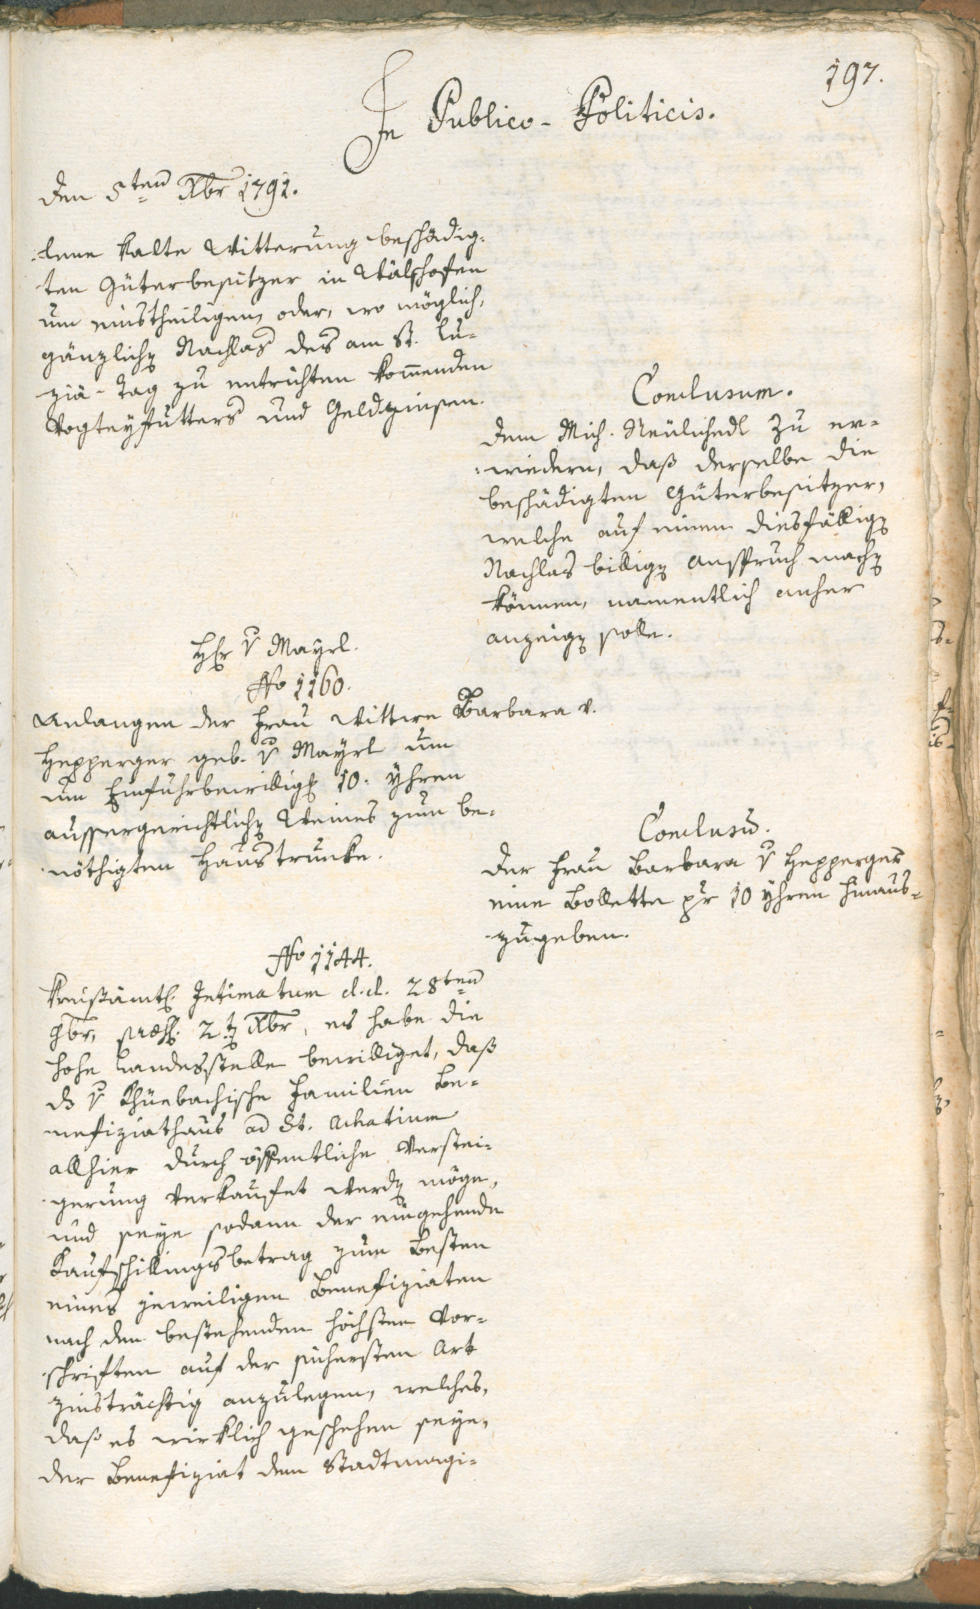 197.
In Publico-Politicis.
den 5ten Xbr 1791.
-tene kalte Witterung beschädig-
ten Güterbesitzer in
um einstheiligen, oder, wo möglich,
gänzlichen Nachlas des am St. Lu-
ziä-Tag zu entrichten kommenden
Vogteyfutters und Geldzinsen.
Conclusum.
dem Mich. Neulichedl zu er-
-wiedern, daß derselbe die
beschädigten Güterbesitzer,
welche auf einem diesfällig
Nachlas billig anspruch mach
können, namentlich anher
anzeig solle.
Hr v Mayrl.
No 1160.
Anlangen der Frau Wittwe Barbara v.
Hepperger geb. v Mayrl um
um Einfuhrbewillig 10. Yhren
aussergerichtlich Weines zum be-
-nöthigten Haustrunke.
Conclusu.
der Frau Barbara v Hepperger
eine Bollette pr 10 Yhren hinaus-
-zugeben.
No 1144.
Kreisämtl. Intimatum d.d. 28ten
9br, praes. 2t Xbr, es habe die
hohe Landesstelle bewilliget, daß
ds v Khüebachische Familien Be-
nefiziathaus ad St. Achatium
allhier durch öffentliche Verstei-
gerung verkaufet werd möge,
und seye sodann der eingehende
Kaufschillingsbetrag zum Besten
eines jeweiligen Benefiziaten
nach den bestehenden höchsten Vor-
-schriften auf der sichersten Art
zinsträchtig anzulegen, welches,
daß es wirklich geschehen seye,
der Benefiziat dem Stadtmagi-